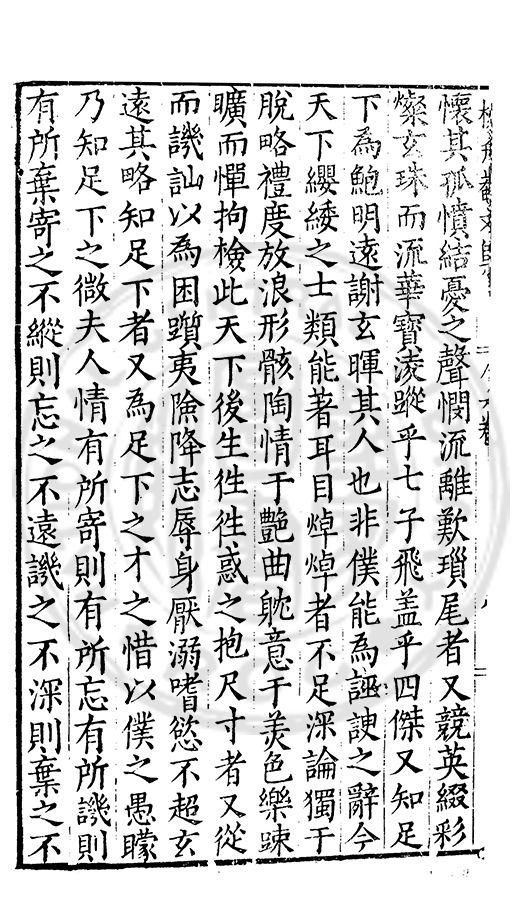 懷其孤憤結憂之聲憫流離歎瑣尾者又競英綴彩
燦玄珠而流華寶淩蹤乎七子飛盖乎四傑又知足
下為鮑明遠謝玄暉其人也非僕能為誣諛之辭今
天下纓緌之士類能著耳目焯焯者不足深論獨于
脫略禮度放浪形骸陶情于艶曲躭意于羙色樂踈
曠而憚拘檢此天下後生徃徃惑之抱尺寸者又從
而譏訕以為困躓夷險降志辱身厭溺嗜慾不超玄
遠其略知足下者又為足下之才之惜以僕之愚矇
乃知足下之微夫人情有所寄則有所忘有所譏則
有所棄寄之不縱則忘之不遠譏之不深則棄之不